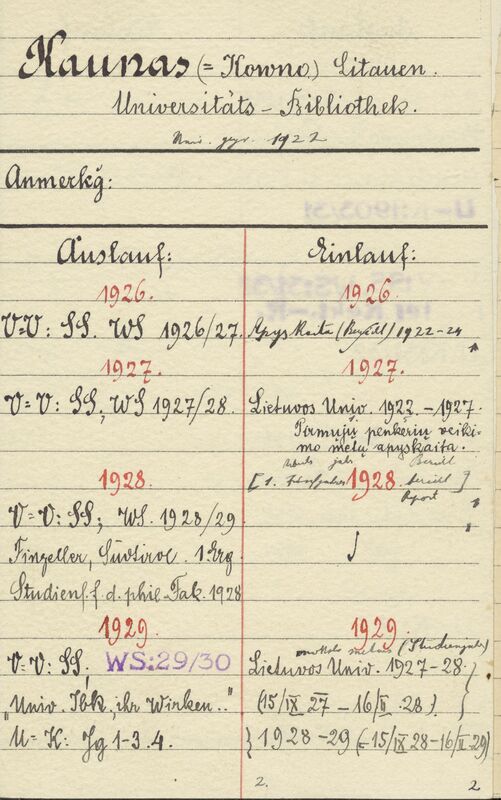 Kaunas (= Kowno) Litauen.
Universitäts-Bibliothek.
1922
Anmerkg:
Auslauf:
Einlauf:
1926.
1926.
V=V: SS. WS 1926/27.
Apyskaita (Bericht) 1922-24
1927.
1927.
V=V: SS, WS 1927/28.
Lietuvos Univ. 1922. - 1927.
Pirmųjų penkerių veiki-
mo metų apyskaita.
Bericht
1928.
[1. 1928. ]
V=V: SS; WS. 1928/29
Finzeller, Südtirol. 1.Erg
Studienf. f. d. phil. Fak. 1928
1929.
1929.
(Studienjahr)
V=V: SS, WS:29/30
Lietuvos Univ. 1927-28.
"Univ. Ibk, ihr Wirken.."
(15/IX 27 - 16/II 28)
U=K: Jg 1-3. 4.
1928-29 (= 15/IX 28-16/II 29)
2.
2